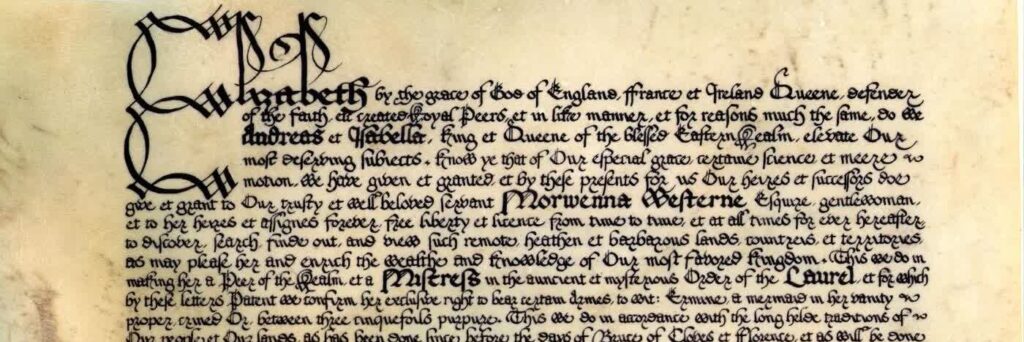 Elizabeth by the grace of God of England, ffrance et Ireland Queene, defender
of the faith, etc created Royal Peers, et in like manner, et for reasons much the same, do we
Andreas et Isabella, King et Queene of the blessed Eastern Realm, elevate Our
most deserving subjects. Know ye that of Our especial grace, certaine science et meere
motion, we have given et granted, et by these presents for us Our heires et successors doe
give et grant to Our trusty et well beloved servant Morwenna Westerne Esquire, gentlewoman,
et to her heires et assignes forever, free liberty et licence from time to time, et at all times for ever hereafter,
to discover, search, finde out, and view such remote, heathen et barbarous lands, countries, et territories,
as may please her and enrich the wealthe and knowledge of Our most favored Kingdom. This we do in
making her a Peer of the Realm, et a Mistress in the auncient et mysterious Order of the Laurel, et for which
by these letters Patent we confirm her exclusive right to bear certain Armes, to wit: Ermine, a mermaid in her vanity
proper, crined Or, between three cinquefoils purpure. This we do in accordance with the long helde traditions of
Our people et Our lands, as has been done since before the days of Bruce of Clobes et fflorence, et as will be done